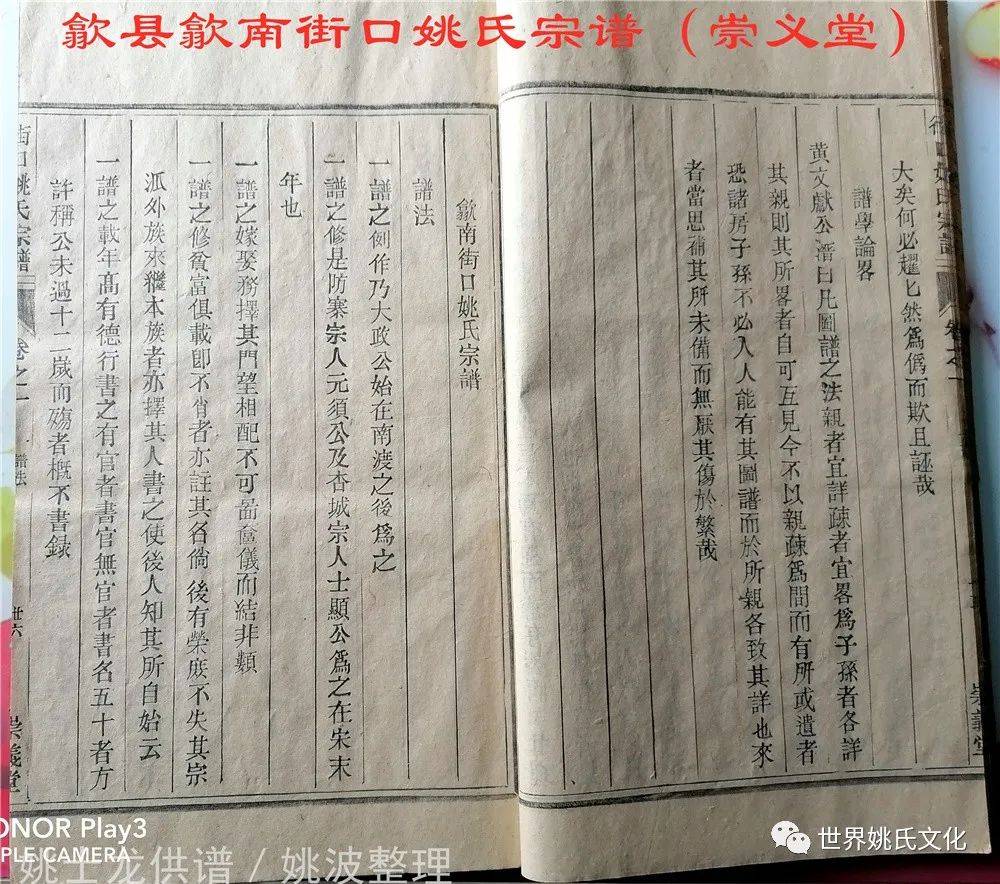 歙县歙南街口姚氏宗谱（崇义堂）
大矣何必趯匕然爲僞而欺且誣哉
譜學論畧
黃文獻公溍曰凡圖譜之法親者宜詳疎者宜畧爲子孫者各詳
其親則其所畧者自可互見今不以親疎爲間而有所或遺者
恐諸房子孫不必人人能有其圖譜而於所親各致其詳也來
者當思補其所未備而無厭其傷於繁哉
崇義堂
歙南街口姚氏宗譜
譜法
一譜之例作乃大政公始在南渡之後爲之
一譜之修是防寨宗人元須公及杏城宗人士顯公爲之在宋末
年也
一譜之嫁娶務擇其門望相配不可啚奩儀而結非類
一譜之修貧富俱載卽不肖者亦註其名倘後有榮庶不失其宗
派外族來繼本族者亦擇其人書之使後人知其所自始云
一譜之載年髙有德行書之有官者書官無官者書名五十者方
許稱公未過十二歲而殤者概不書録
街口姚氏宗譜
卷之一
譜法
卅六
崇義堂
HONOR Play3
TRIPLE CAMERA
姚士龙供谱 / 姚波整理
世界姚氏文化